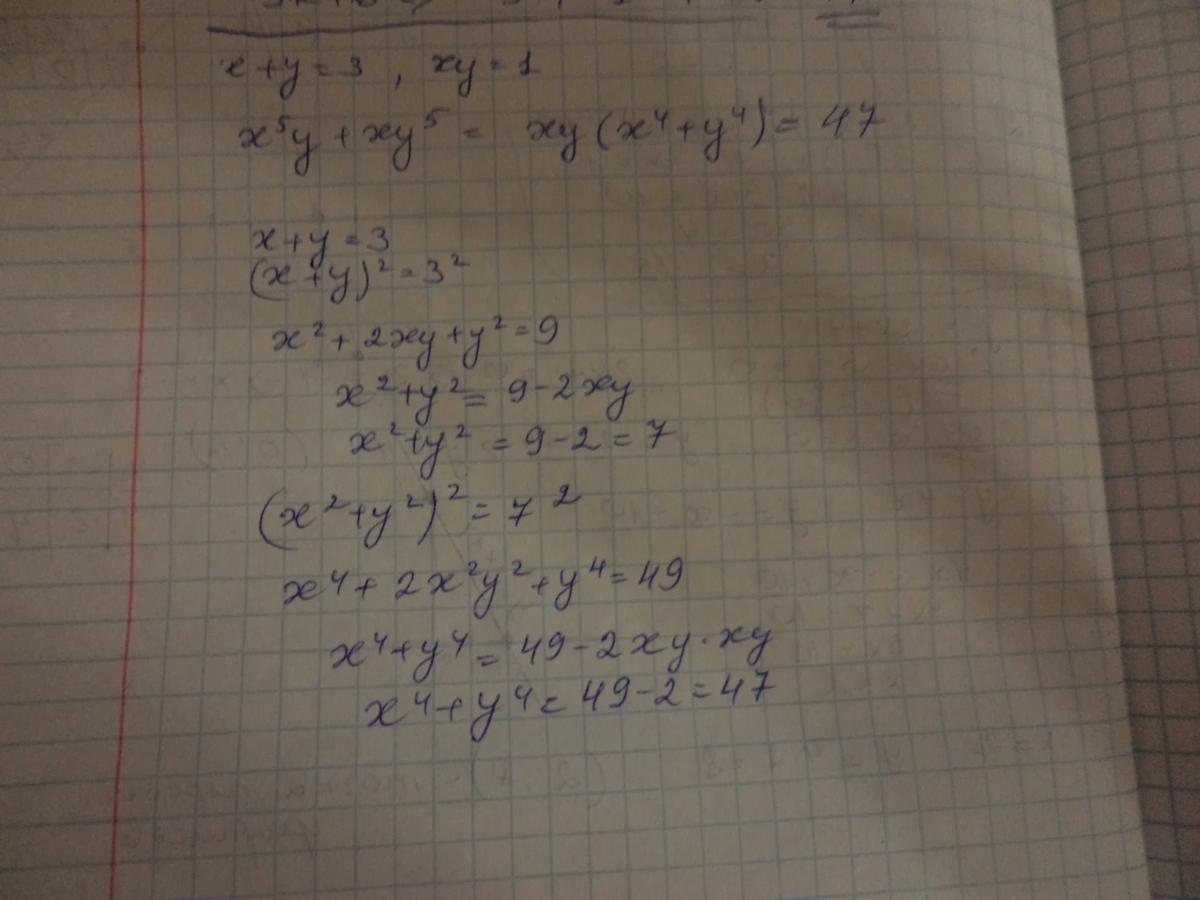 x+y=3 , xy=1
x⁵y + xy⁵ = xy(x⁴+y⁴) = 47
x+y=3
(x+y)²=3²
x²+2xy+y²=9
x²+y²=9-2xy
x²+y²=9-2=7
(x²+y²)²=7²
x⁴+2x²y²+y⁴=49
x⁴+y⁴=49-2xy·xy
x⁴+y⁴=49-2=47